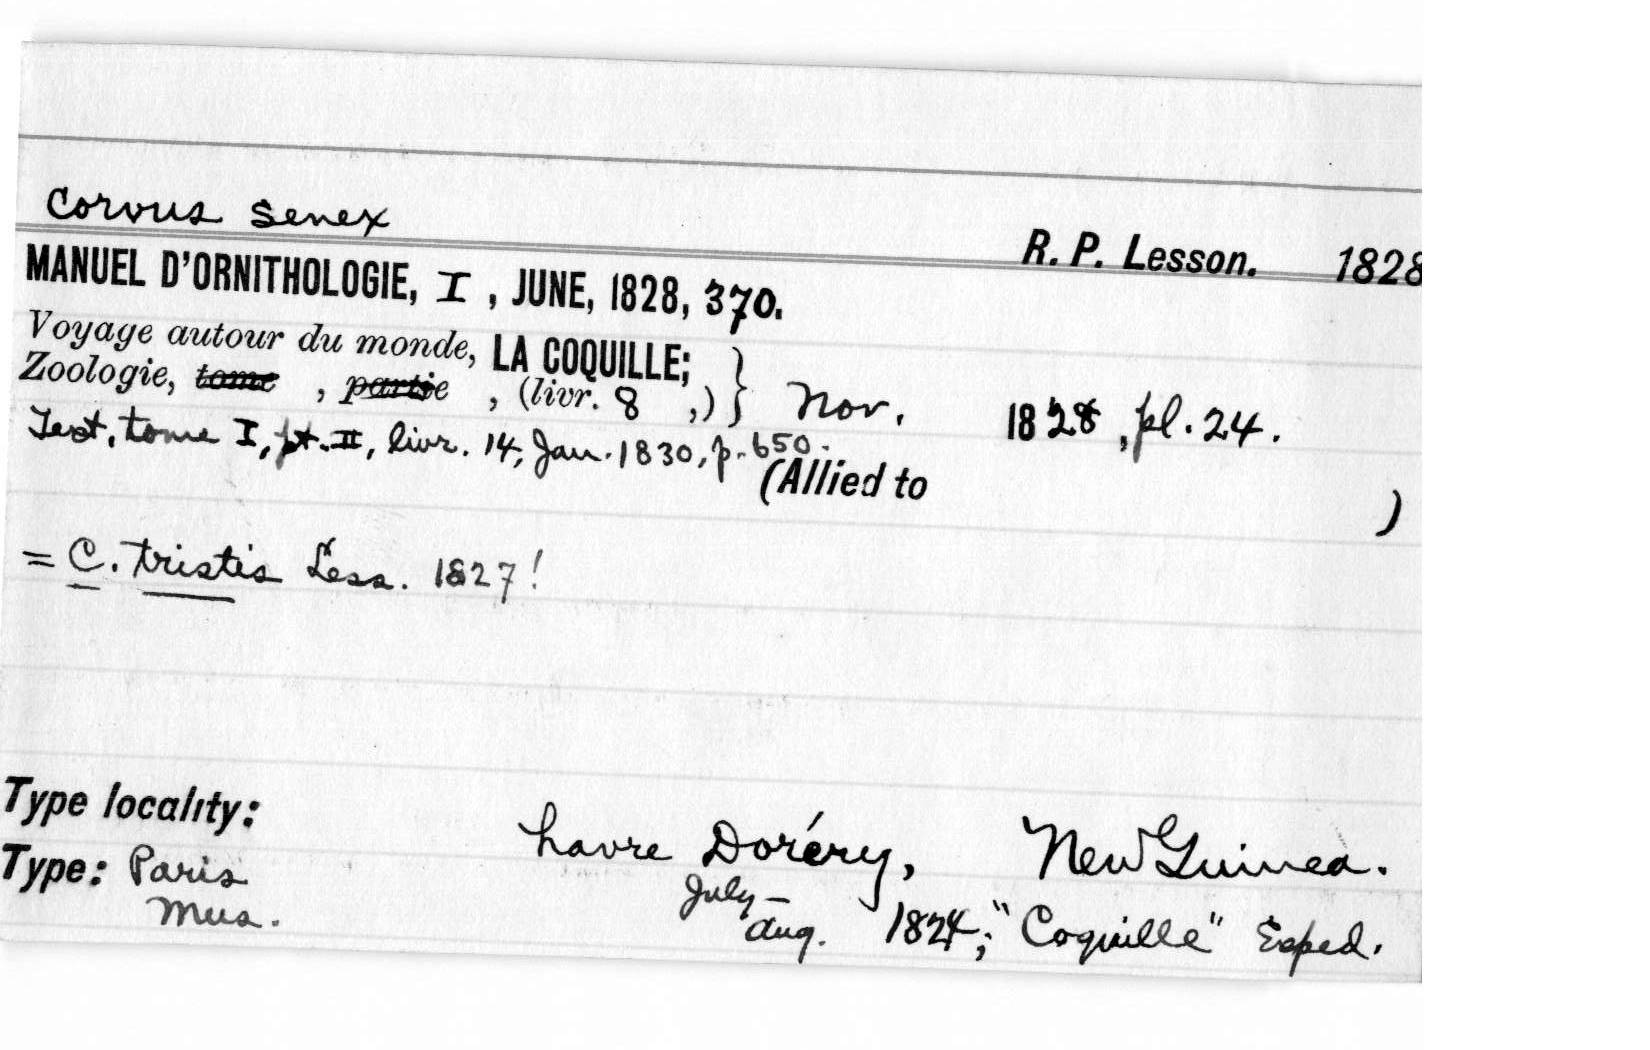 Corvus senex
R. P. Lesson. 1828
MANUEL D'ORNITHOLOGIE, I , JUNE, 1828, 370.
Voyage autour du monde, LA COQUILLE; }
Zoologie, tome , partie , (livr. 8 ,) } Nov. 1828, pl. 24.
Text, tome I, pt. II, livr. 14, Jan. 1830, p. 650.
(Allied to )
= C. tristis Less. 1827!
Type locality: havre Doréry, New Guinea.
Type: Paris Mus. July-Aug. 1824; "Coquille" Exped.